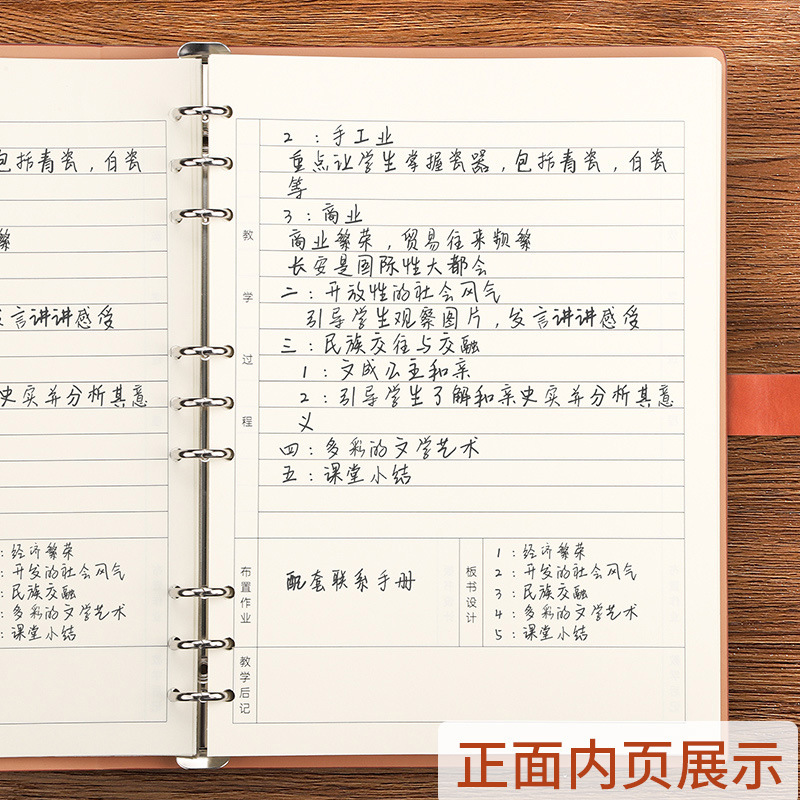 包括青瓷，白瓷
繁
发言讲讲感受
史实并分析其意
：经济繁荣
：开发的社会风气
：民族交融
：多彩的文学艺术
：课堂小结
教学过程
2：手工业
重点让学生掌握瓷器，包括青瓷，白瓷
等
3：商业
商业繁荣，贸易往来频繁
长安是国际性大都会
二：开放性的社会风气
引导学生观察图片，发言讲讲感受
三：民族交往与交融
1：文成公主和亲
2：引导学生了解和亲史实并分析其意
义
四：多彩的文学艺术
五：课堂小结
布置作业
配套联系手册
板书设计
1：经济繁荣
2：开发的社会风气
3：民族交融
4：多彩的文学艺术
5：课堂小结
教学后记
正面内页展示